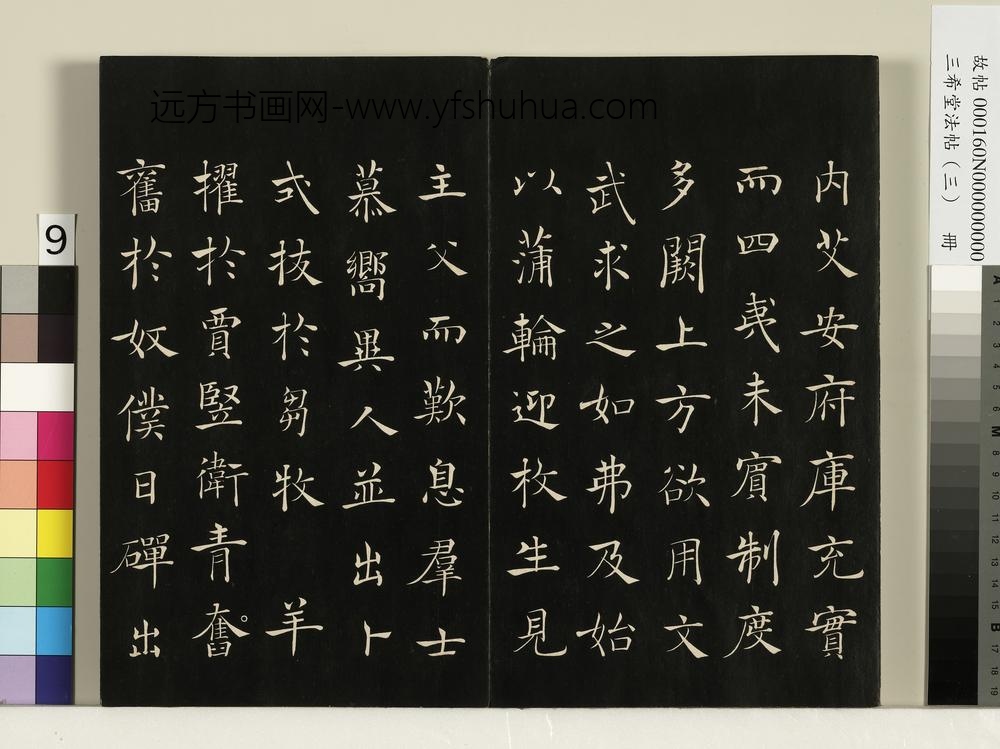 远方书画网-www.yfshuhua.com
故帖 000160N000000000
三希堂法帖（三） 冊
内艾安府庫充實
而四夷未賓制度
多闕上方欲用文
武求之如弗及始
以蒲輪迎枚生見
主父而歎息羣士
慕嚮異人並出卜
式拔於芻牧羊
擢於賈豎衛青奮
奮於奴僕日磾出
9
A 1 2 3 4 5 6 M 8 9 10 11 12 13 14 15 B 17 18 19